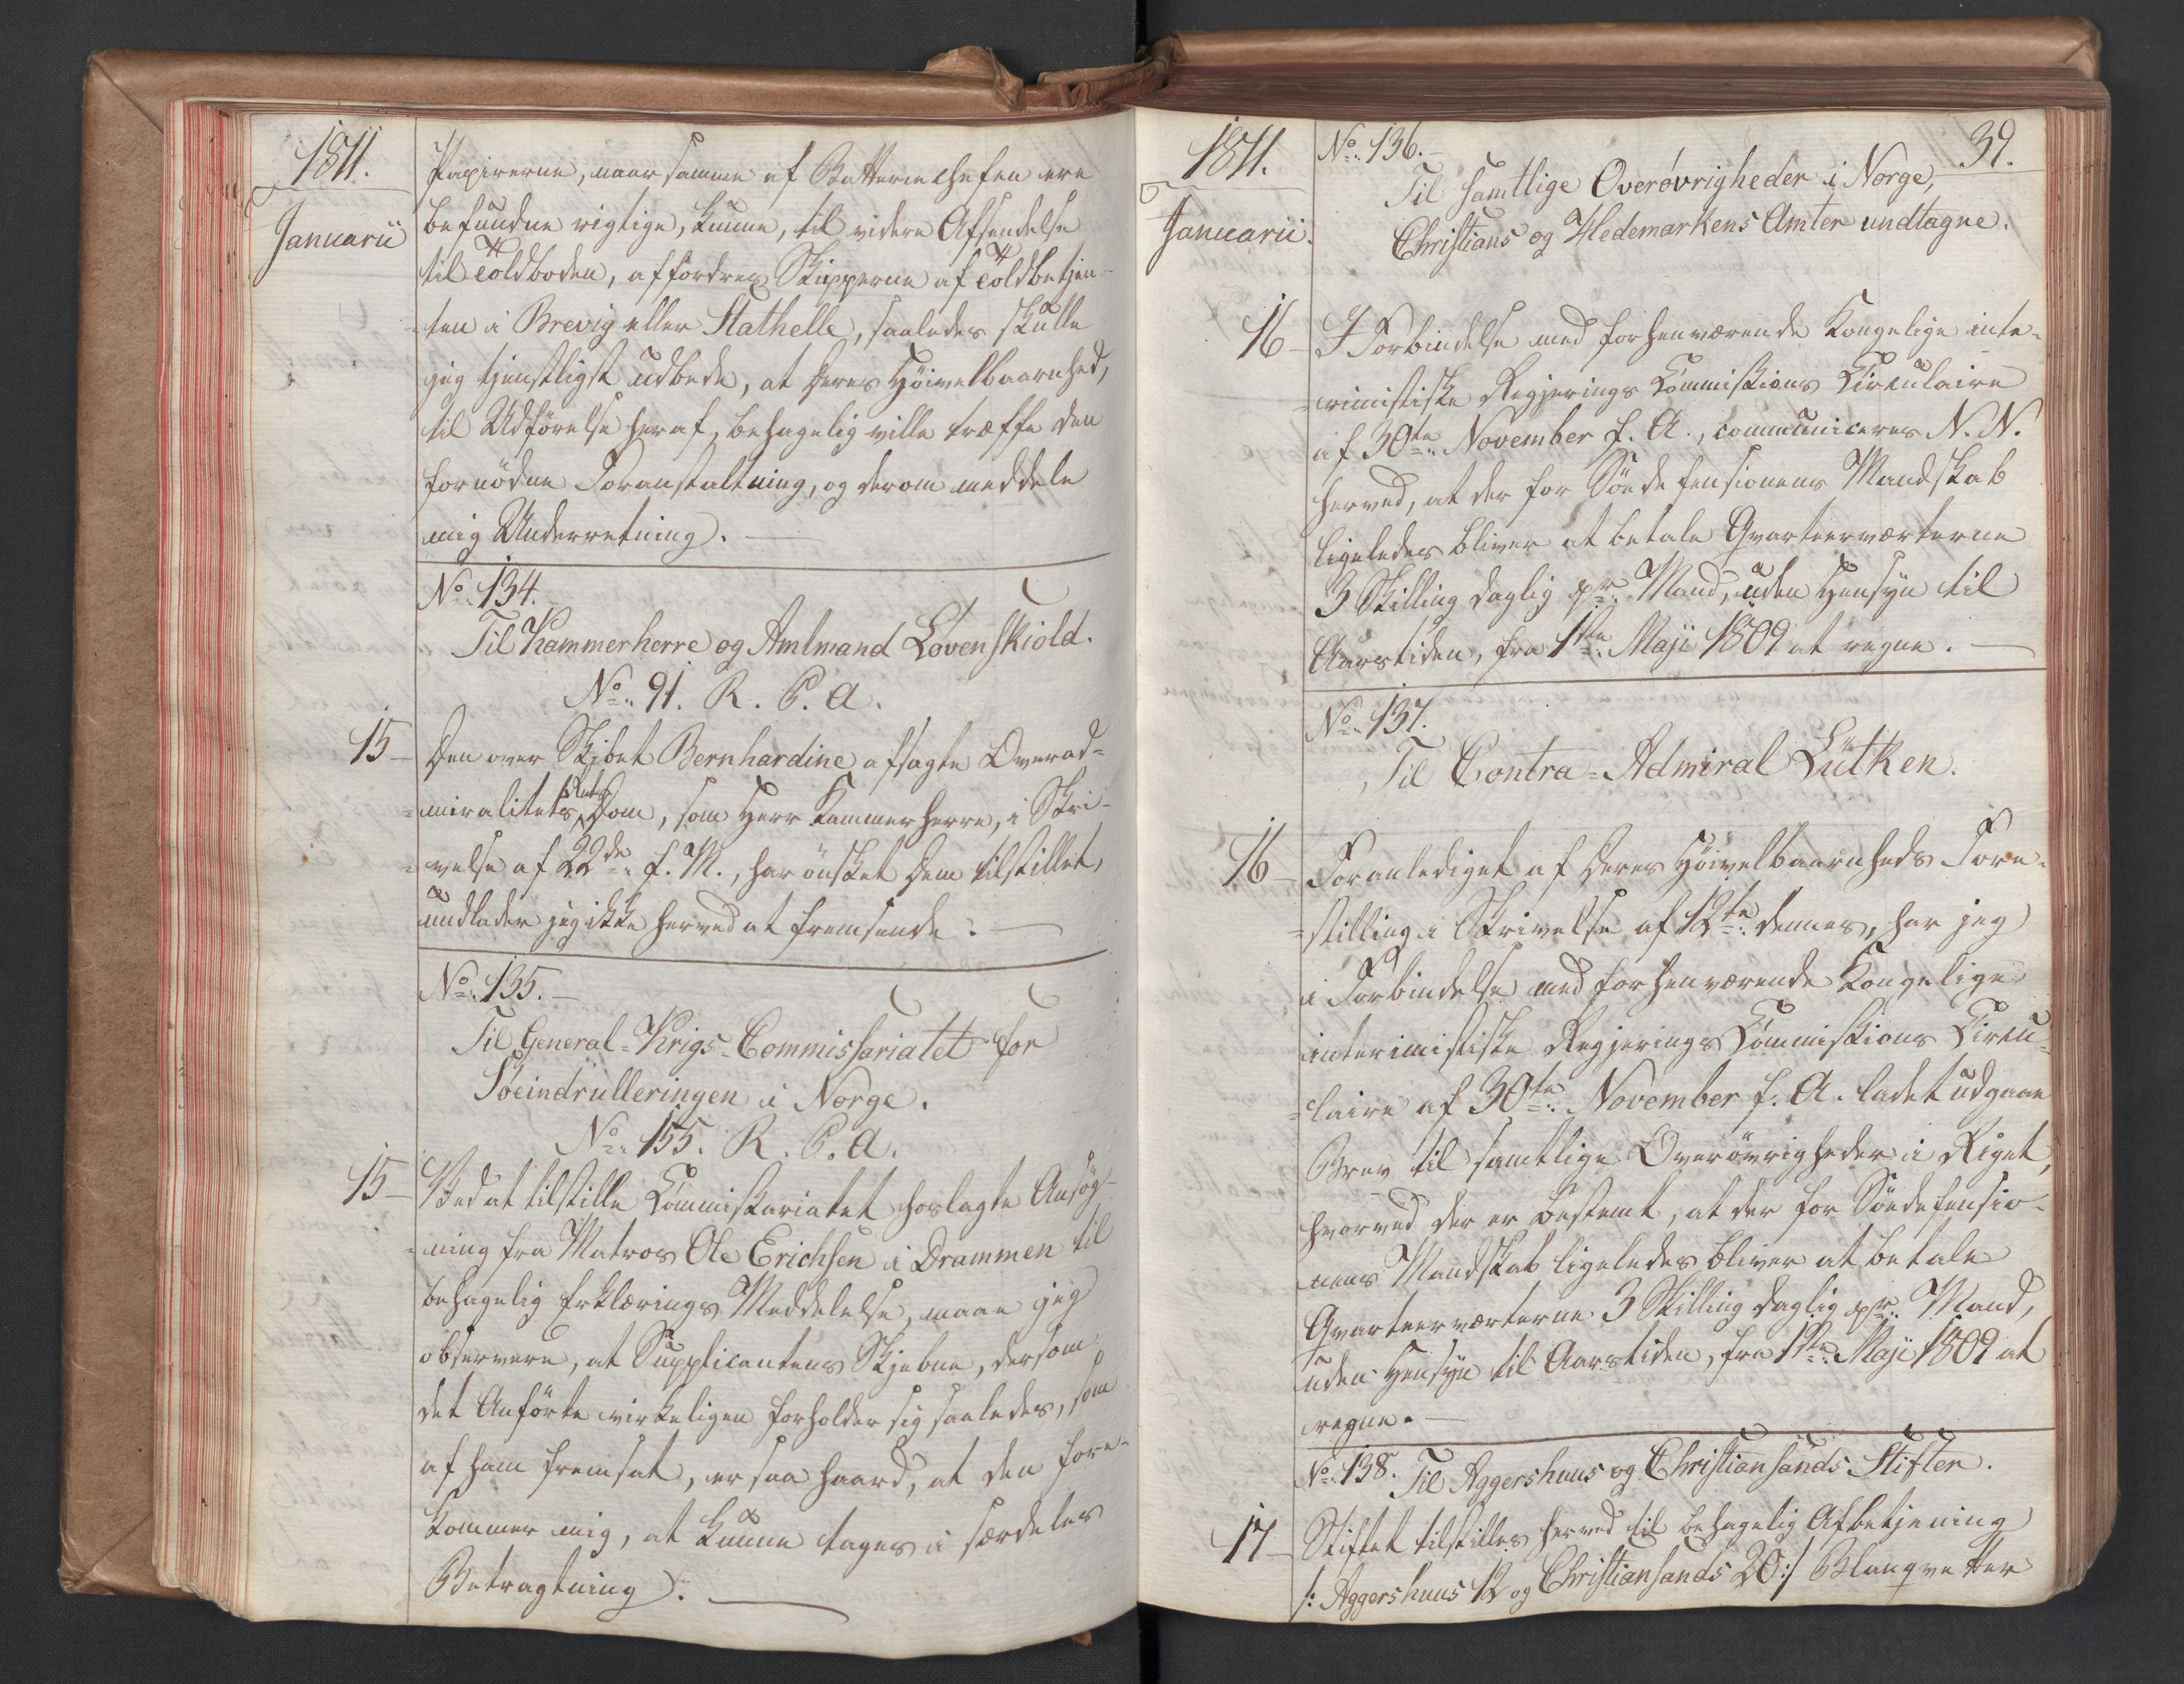 1811.
Januarii
Papirerne, naar samme af Batteriechefen ere
befundne rigtige, kunne, til videre Afsendelse
til Toldboden, affordres Skipperne af Toldbetjen-
-ten i Brevig eller Stathelle, saaledes skulle
jeg tjenstligst udbede, at Deres Høivelbaarenhed,
til Udførelse heraf, behagelig ville træffe den
fornødne Foranstaltning, og derom meddele
mig Underretning. —
No. 134.
Til Kammerherre og Amtmand Løvenskiold.
No. 91. R. P. A.
15 — Den over Skibet Bernhardine afsagte Overad-
-miralitets Rets Dom, som Herr Kammerherre, i Skri-
-velse af 22de f. M., har ønsket Dem tilstillet,
undlader jeg ikke herved at fremsende. —
No. 135. —
Til General-Krigs-Commissariatet for
Søeindrulleringen i Norge.
No. 155. R. P. A.
15 — Ved at tilstille Commissariatet hoslagte Ansøg-
-ning fra Matros Ole Erichsen i Drammen til
behagelig Erklærings Meddelelse, maae jeg
observere, at Supplicantens Skjebne, dersom
det Anførte virkeligen forholder sig saaledes, som
af ham fremsat, er saa haard, at den fore-
kommer mig, at kunne tages i særdeles
Betragtning. —
1811.
Januarii.
39.
No. 136. —
Til samtlige Overøvrigheder i Norge,
Christians og Hedemarkens Amter undtagne.
16 — I Forbindelse med forhenværende Kongelige inte-
-rimistiske Regjerings Commissions Circulaire
af 30te November f. A., communiceres N. N.
herved, at der for Søedefensionens Mandskab
ligeledes bliver at betale Qvarteerværterne
3 Skilling daglig pr. Mand, uden Hensyn til
Aarstiden, fra 1ste Maji 1809 at regne. —
No. 137.
Til Contra-Admiral Lütken.
16 — Foranlediget af Deres Høivelbaarenheds Fore-
-stilling i Skrivelse af 12te dennes, har jeg
i Forbindelse med forhenværende Kongelige
interimistiske Regjerings Commissions Circu-
-laire af 30te November f. A. ladet udgaae
Brev til samtlige Overøvrigheder i Riget,
hvorved der er bestemt, at der for Søedefensio-
nens Mandskab ligeledes bliver at betale
Qvarteerværterne 3 Skilling daglig pr. Mand,
uden Hensyn til Aarstiden, fra 1ste Maji 1809 at
regne. —
No. 138. Til Aggershuus og Christiansands Stifter.
17 — Stiftet tilstilles herved til behagelig Afbetjening
/: Aggershuus 12 og Christiansands 20 :/ Blanqvetter